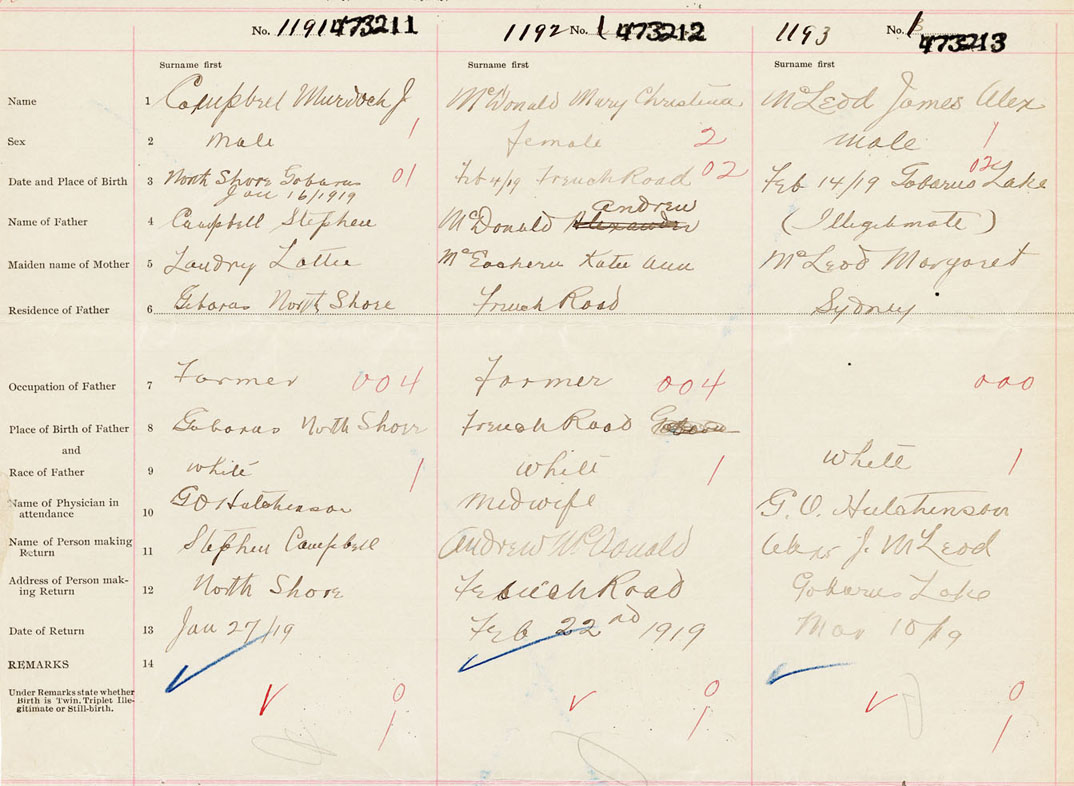 No. 1191 473211 1192 No. 1 473212 1193 No. 1 473213
Surname first Surname first Surname first
Name 1 Campbell Murdoch J McDonald Mary Christina McLeod James Alex
Sex 2 male 1 female 2 male 1
Date and Place of Birth 3 North Shore Gobarus 01 Feb 4/19 French Road 02 Feb 14/19 Gabarus Lake 02
Jan 16/1919
Andrew
Name of Father 4 Campbell Stephen McDonald Alexander (Illegitimate)
Maiden name of Mother 5 Landry Lottie McEachern Katie Ann McLeod Margaret
Residence of Father 6 Gabaras North Shore French Road Sydney
Occupation of Father 7 Farmer 004 Farmer 004 000
Place of Birth of Father 8 Gabaras North Shore French Road
and
Race of Father 9 white 1 white 1 white 1
Name of Physician in
attendance 10 G O Hutchinson Medwife G. O. Hutchinson
Name of Person making
Return 11 Stephen Campbell Andrew McDonald J. McLeod
Address of Person mak-
ing Return 12 North Shore French Road Gabarus Lake
Date of Return 13 Jan 27/19 Feb 22nd 1919 Mar 10/19
REMARKS 14
Under Remarks state whether
Birth is Twin, Triplet Ille-
gitimate or Still-birth.
0 0 0
1 1 1